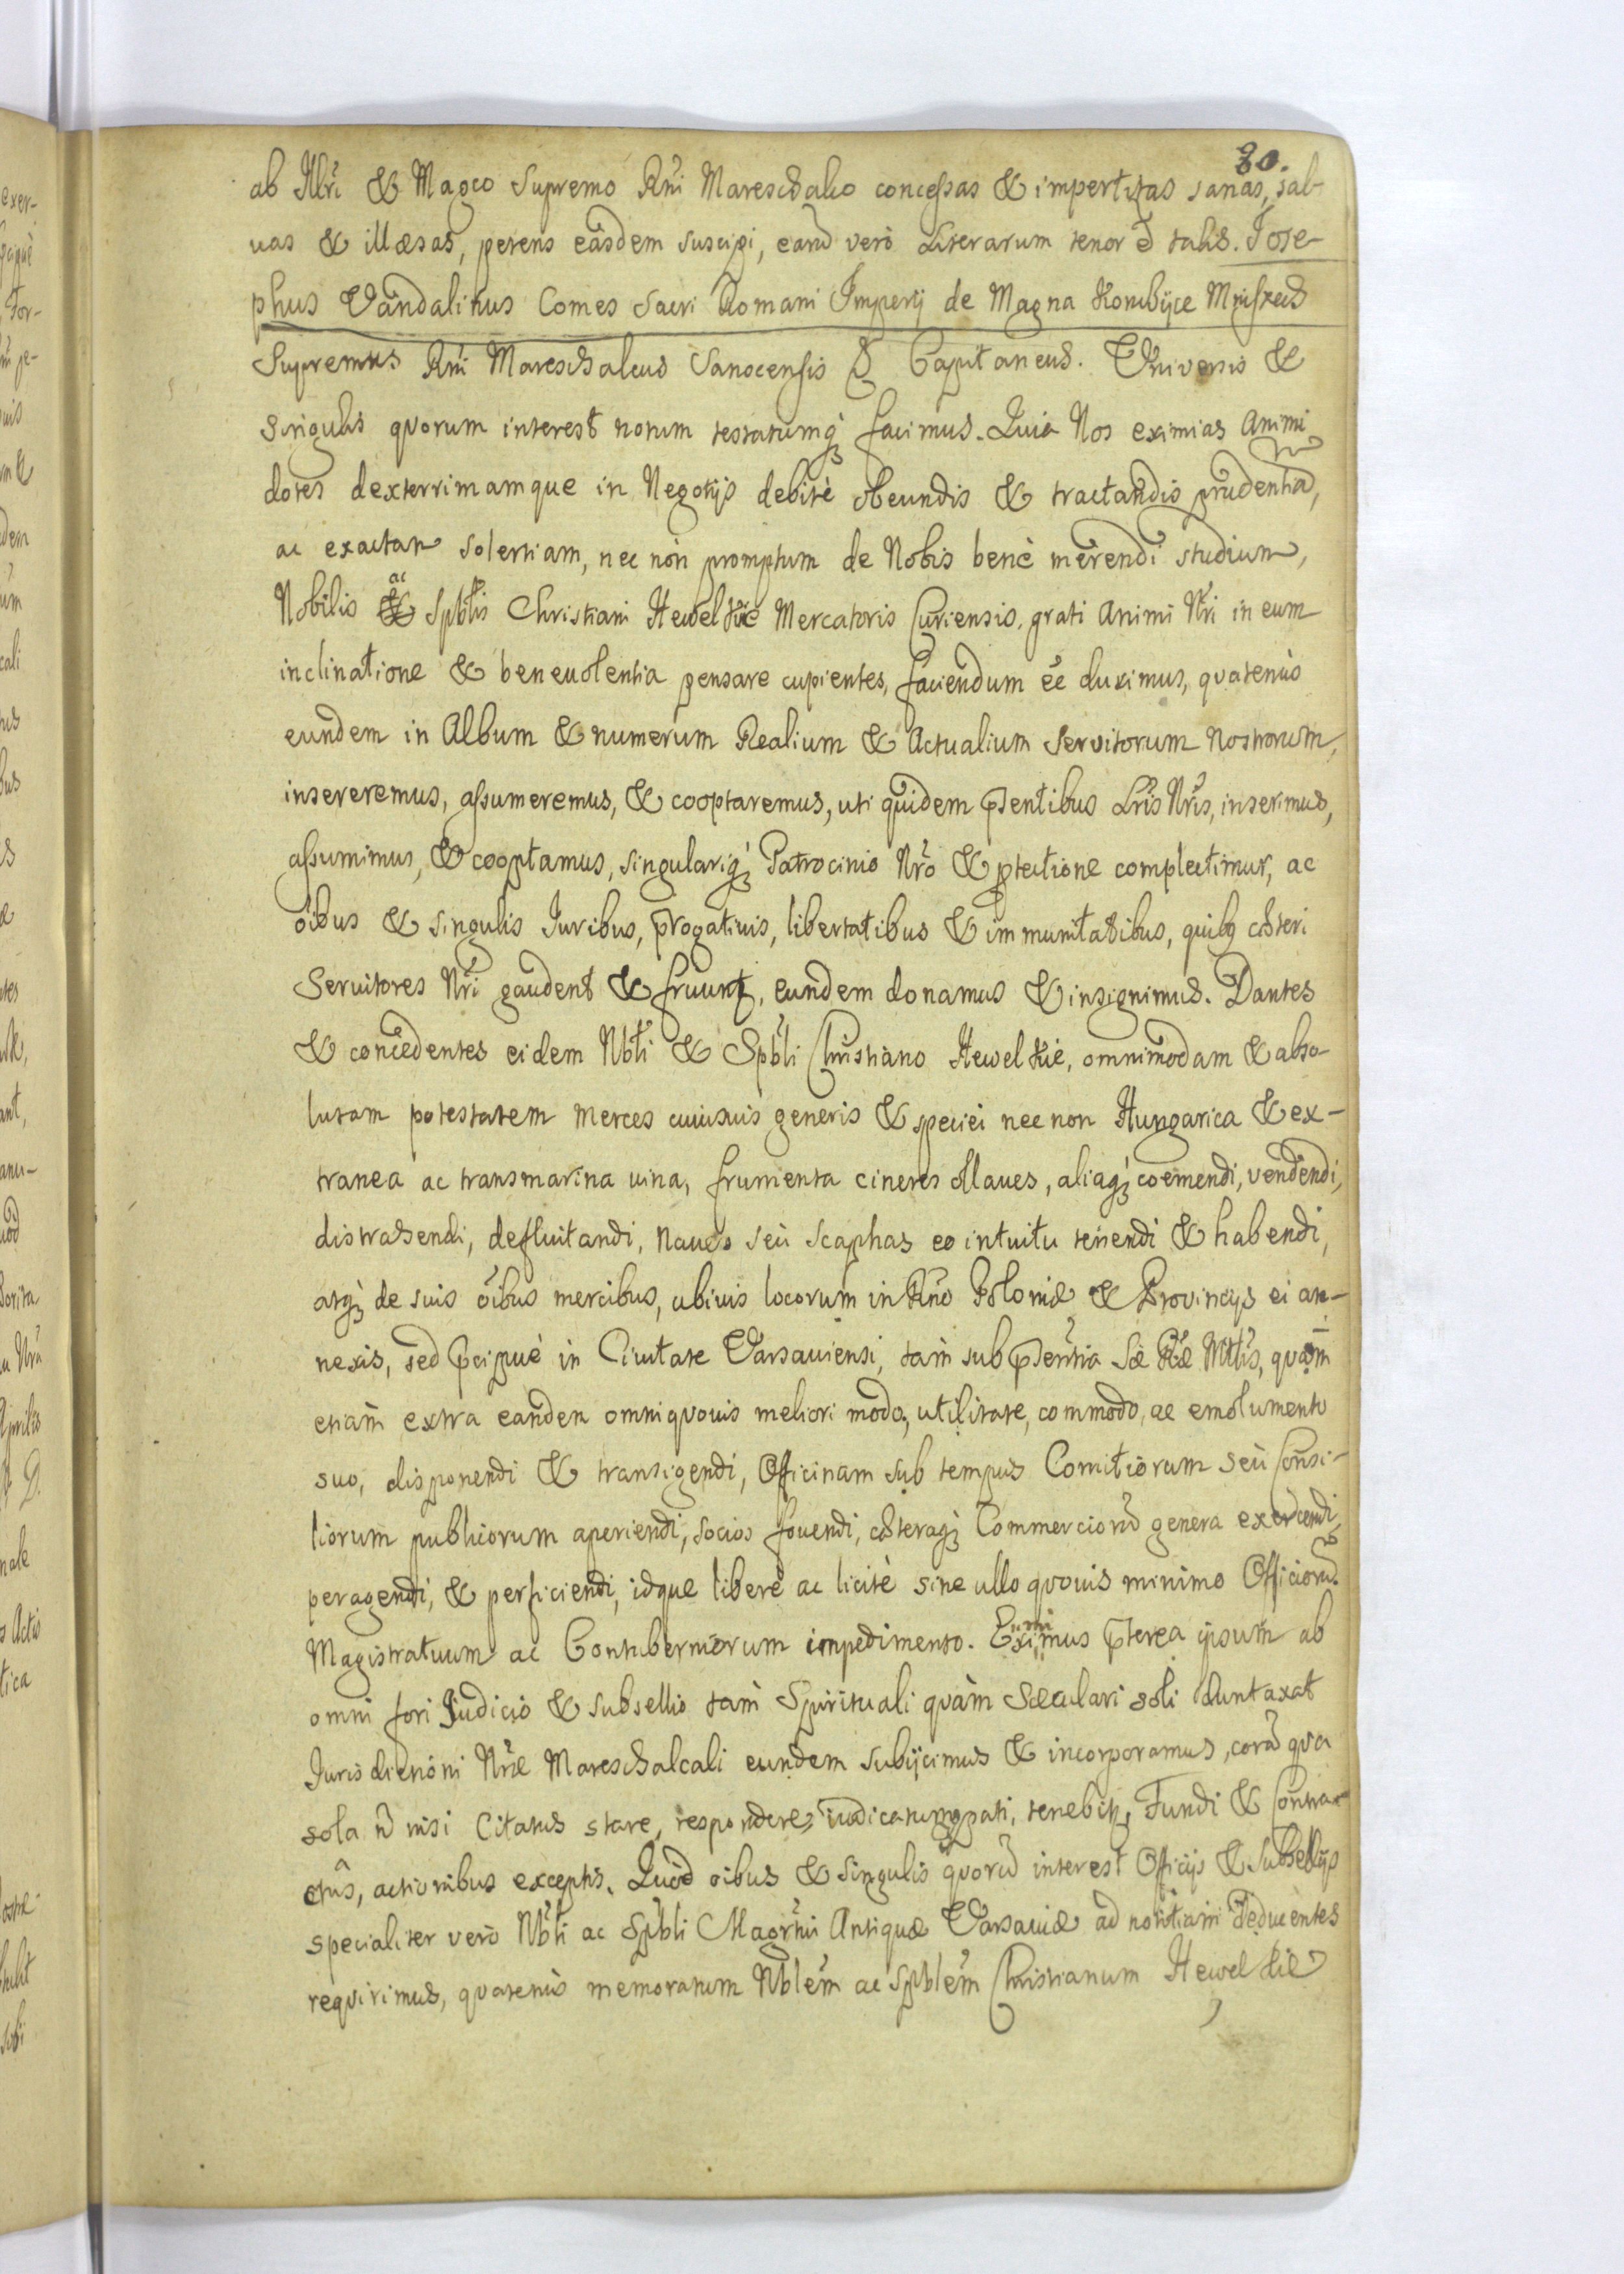 30.
ab Illri & Magco Supremo Rni Mareschalco concessas & impertitas sanas, sal-
uas & illæsas, petens easdem suscipi, earũ verò Literarum tenor ẽ talis. Jose-
phus Vandalinus Comes Sacri Romani Imperij de Magna Konczyce Mniszech
Supremus Rni Mareschalcus Sanocensis & Capitaneus. Vniversis &
singulis quorum interest notum testatumq; facimus. Quia Nos eximias Animi
dotes dexterrimamque in Negotijs debitè obeundis & tractandis prudentiã,
ac exactam solertiam, nec nòn promptum de Nobis benè merendi studium,
Nobilis ac Spblis Christiani Hewelkie Mercatoris Curiensis, grati Animi Nri in eum
inclinatione & beneuolentia pensare cupientes, faciendum eẽ duximus, quatenùs
eundem in Album & numerum Realium & Actualium Servitorum Nostrorum,
insereremus, assumeremus, & cooptaremus, uti quidem pñtentibus Lris Nris, inserimus,
assumimus, & cooptamus, singulariq; Patrocinio Nrõ & ptectione complectimur, ac
oĩbus & singulis Juribus, progatiuis, libertatibus & immunitatibus, quibq cæteri
Seruitores Nri gaudent & fruunt, eundem donamus & insignimus. Dantes
& concedentes eidem Nbli & Spbli Christiano Hewelkie, omnimodam & abso-
lutam potestatem merces cuiusuis generis & speciei nec non Hungarica & ex-
tranea ac transmarina uina, frumenta cineres claues, aliaq; coëmendi, vendendi,
distrahendi, defluitandi, Naues seù scaphas eo intuitu tenendi & habendi,
atq; de suis oĩbus mercibus, ubiuis locorum in Rño Poloniæ & Prouincijs ei an-
nexis, sed pcipuè in Ciuitate Varsauiensi, tàm sub psentia Sæ Ræ Mttis, quàm
etiàm extra eandem omni quouis meliori modo, utilitate, commodo, ac emolumento
suo, disponendi & transigendi, Officinam sub tempus Comitiorum seù Consi-
liorum publicorum aperiendi, socios fouendi, cæteraq; Commerciorũ genera exercendi,
peragendi, & perficiendi, idque liberè ac licitè sine ullo quouis minimo Officiorũ
Magistratuum ac Contuberniorum impedimento. Eximimus pterea ipsum ab
omni fori Judicio & subsellio tàm Spirituali quàm Sæculari soli duntaxat
Jurisdictioni Nræ Mareschalcali eundem subijcimus & incorporamus, corã qua
sola ñ nisi Citatus stare, respondere, iudicatumq pati, tenebitz, Fundi & Contra-
ctûs, actionibus exceptis. Quòd oibus & singulis quorũ interest Officijs & Subsellijs
specialiter verò Nbli ac Spbli Magrtui Antiquæ Varsauiæ ad notitiam deducentes
requirimus, quatenùs memoratum Nblem ac Spblem Christianum Hewelkie